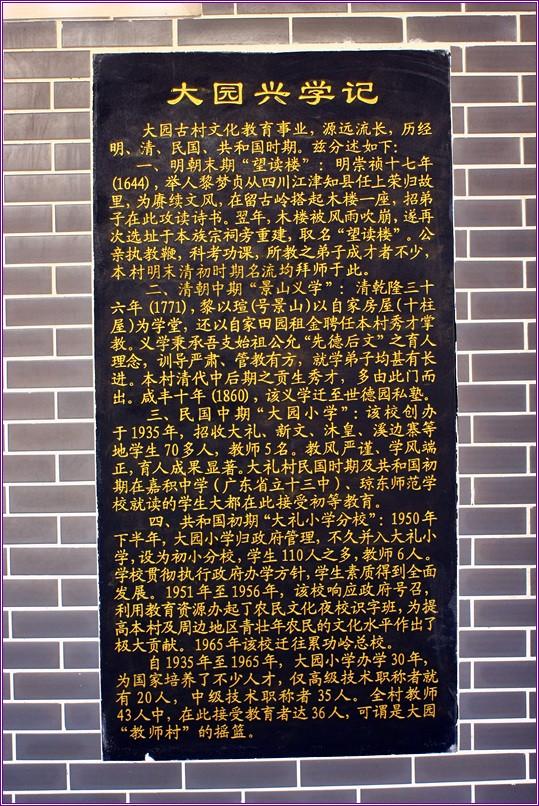 大园兴学记
大园古村文化教育事业，源远流长，历经
明、清、民国、共和国时期。兹分述如下：
一、明朝末期“望读楼”：明崇祯十七年
(1644)，举人黎梦贞从四川江津知县任上荣归故
里，为赓续文风，在留古岭搭起木楼一座，招弟
子在此攻读诗书。翌年，木楼被风雨吹崩，遂再
次选址于本族宗祠旁重建，取名“望读楼”。公
亲执教鞭，科考功课，所教之弟子成才者不少，
本村明末清初时期名流均拜师于此。
二、清朝中期“景山义学”：清乾隆三十
六年(1771)，黎以瑄(号景山)以自家房屋(十柱
屋)为学堂，还以自家田园租金聘任本村秀才掌
教。义学秉承吾支始祖公允“先德后文”之育人
理念，训导严肃、管教有方，就学弟子均甚有长
进。本村清代中后期之贡生秀才，多由此门而
出。咸丰十年(1860)，该义学迁至世德园私塾。
三、民国中期“大园小学”：该校创办
于1935年，招收大礼、新文、沐皇、溪边寨等
地学生70多人，教师5名。教风严谨、学风端
正，育人成果显著。大礼村民国时期及共和国初
期在嘉积中学(广东省立十三中)、琼东师范学
校就读的学生大都在此接受初等教育。
四、共和国初期“大礼小学分校”：1950年
下半年，大园小学归政府管理，不久并入大礼小
学，设为初小分校，学生110人之多，教师6人。
学校贯彻执行政府办学方针，学生素质得到全面
发展。1951年至1956年，该校响应政府号召，
利用教育资源办起了农民文化夜校识字班，为提
高本村及周边地区青壮年农民的文化水平作出了
极大贡献。1965年该校迁往累功岭总校。
自1935年至1965年，大园小学办学30年，
为国家培养了不少人才，仅高级技术职称者就
有20人，中级技术职称者35人。全村教师
43人中，在此接受教育者达36人，可谓是大园
“教师村”的摇篮。